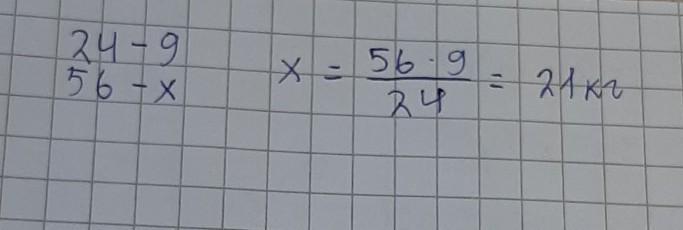 24 - 9
56 - x
x = \frac{56 \cdot 9}{24} = 21 кг